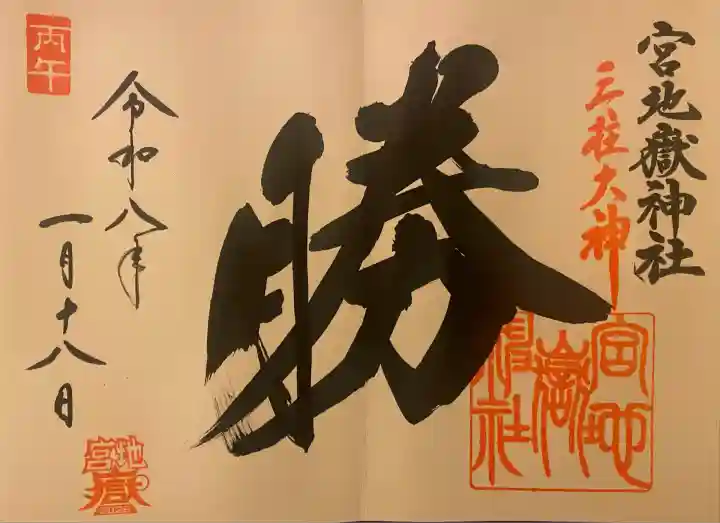 宮地嶽神社
三柱大神
宮地
嶽
神社
勝
丙午
令和八年
一月十八日
宮地
嶽
2026